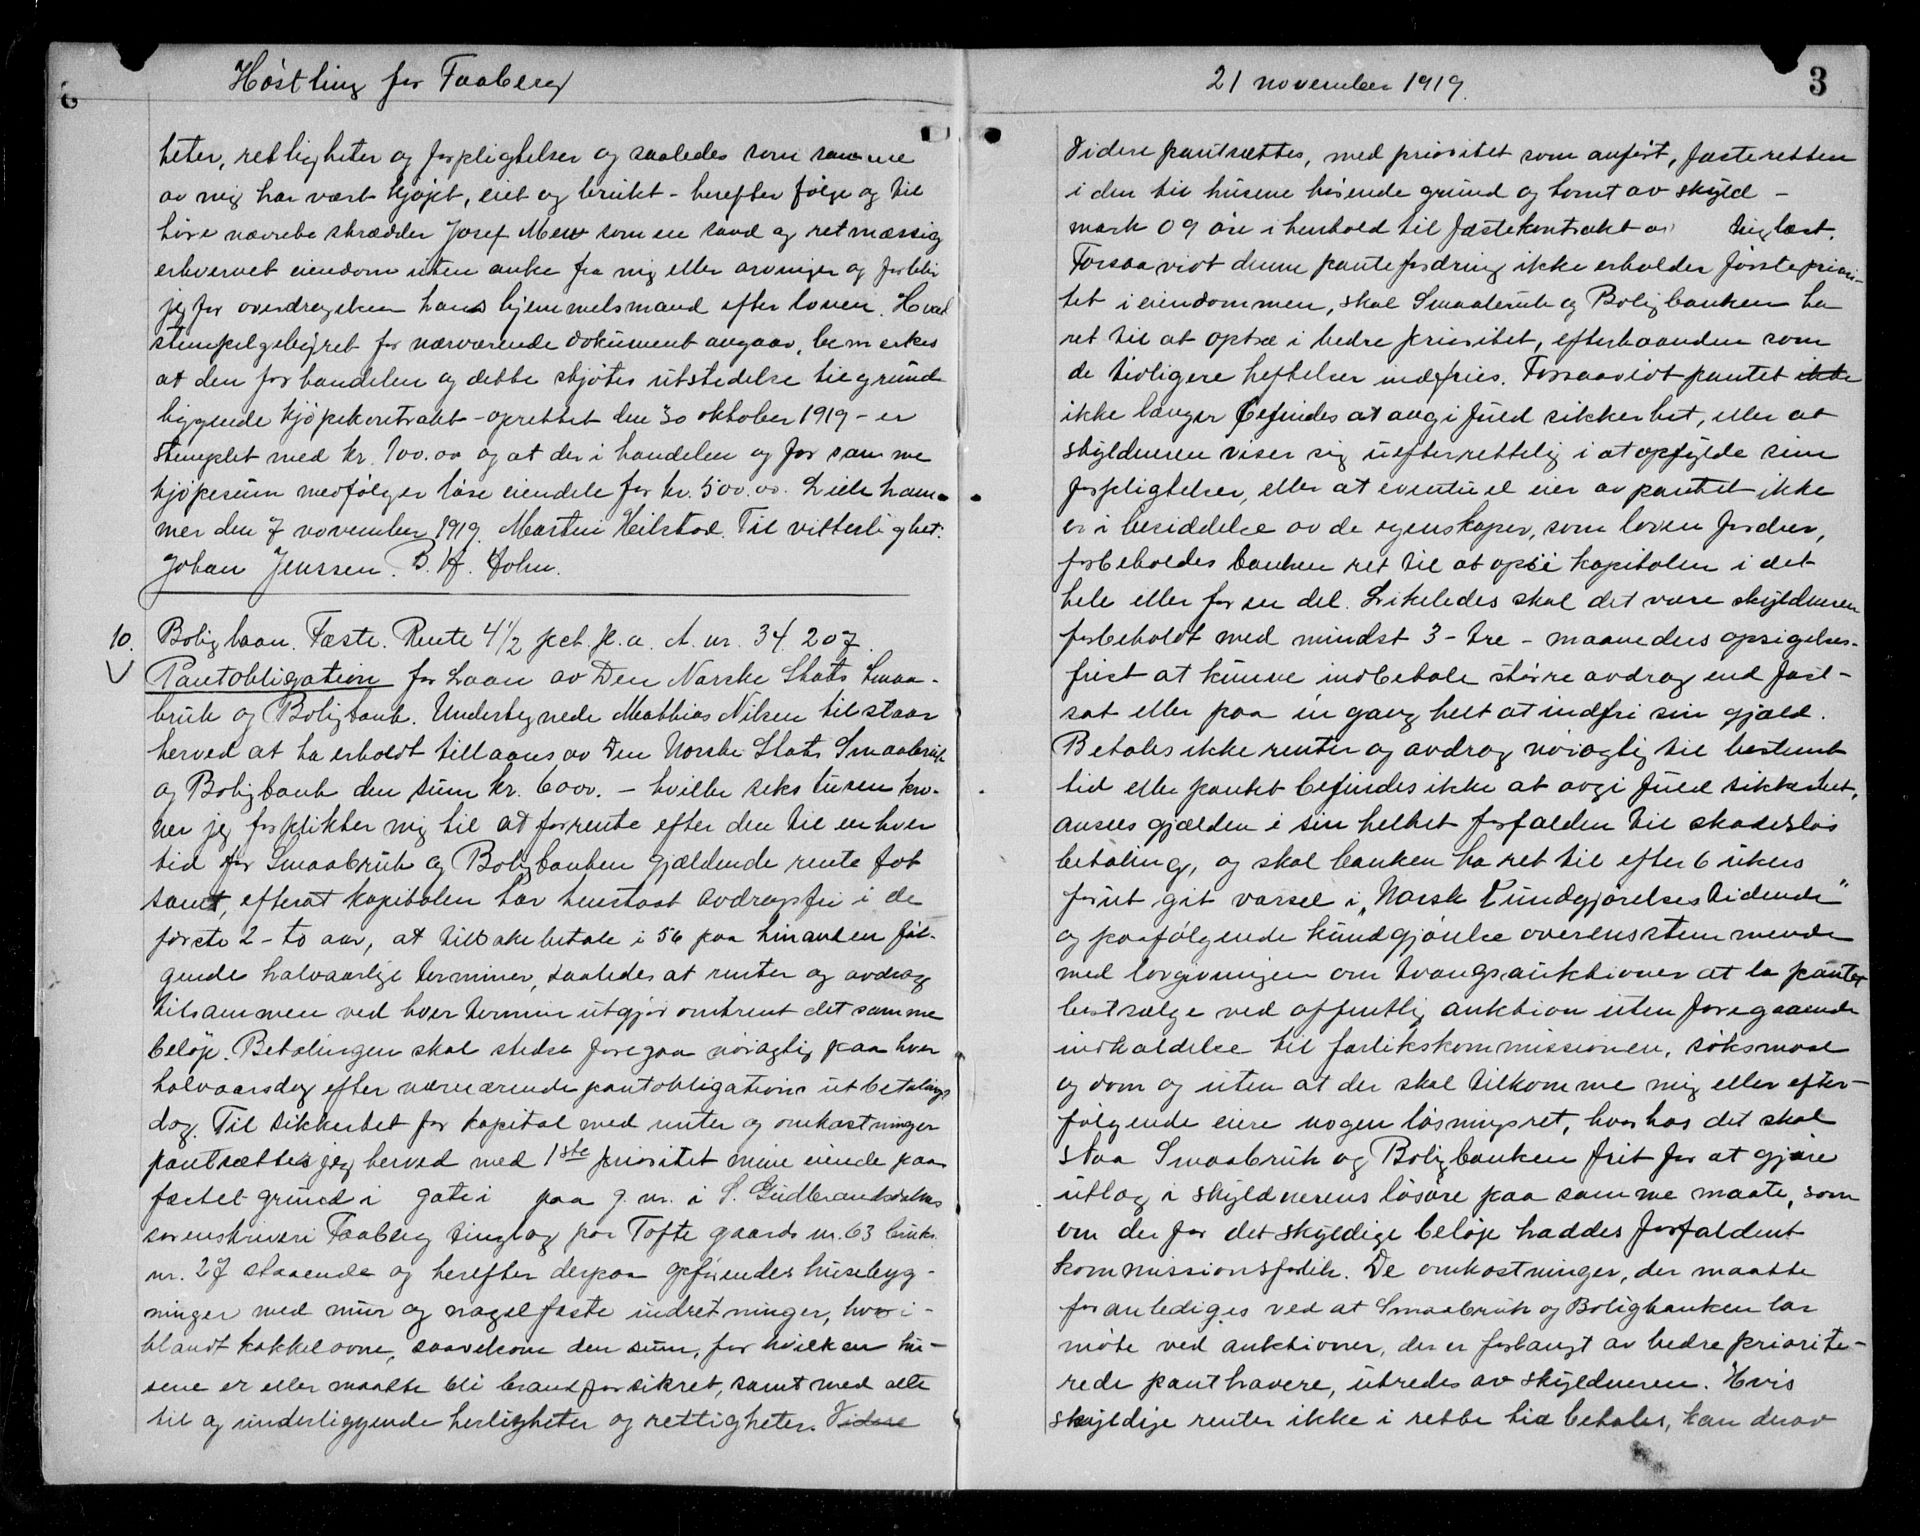 Høstting for Faaberg
heter, rettigheter og forpligtelser og saaledes som samme
av mig har vært kjøpt, eiet og brukt - herefter følge og til
høre nævnte skrædder Josef Mew som en sand og retmæssig
erhvervet eiendom uten anke fra mig eller arvinger og forblir
jeg for overdragelsen hans hjemmelsmand efter loven. Hvad
stempelgebyret for nærværende dokument angaar, bemerkes
at den for handelen og dette skjøtes utstedelse til grund
liggende kjøpekontrakt - oprettet den 30 oktober 1919 - er
stemplet med kr. 100.00 og at der i handelen og for samme
kjøpesum medfølger løse eiendele for kr. 500.00. Lilleham-
mer den 7 november 1919. Martin Heilstad. Til vitterlighet:
Johan Jenssen. B. H. Holm.
10. Boliglaan. Fæste. Rente 4 1/2 pct. p.a. A. nr. 34. 207.
Pantobligation for Laan av Den Norske Stats Smaa-
bruk og Boligbank. Undertegnede Mathias Nilsen tilstaar
herved at ha erholdt tillaans av Den Norske Stats Smaabruk
og Boligbank den sum kr. 6000. - hvilke seks tusen kro-
ner jeg forplikter mig til at forrente efter den til enhver
tid for Smaabruk og Boligbanken gjældende rente fot
samt, efterat kapitalen har henstaat avdragsfri i de
første 2 - to aar, at tilbakebetale i 56 paa hinanden føl-
gende halvaarlige terminer, saaledes at renter og avdrag
tilsammen ved hver termin utgjør omtrent det samme
beløp. Betalingen skal stedse foregaa nøiagtig paa hver
halvaarsdag efter nærværende pantobligations utbetalings
dag. Til sikkerhet for kapital med renter og omkostninger
pantsættes jeg herved med 1ste prioritet mine eiende paa
fæstet grund i gate i paa g. nr. i S. Gudbrandsdalens
sorenskriveri Faaberg tinglag paa Tofte gaards nr. 63 bruks
nr. 27 staaende og herefter derpaa opførendes husebyg-
ninger med mur og nagelfaste indretninger, hvori-
blandt kakkelovne, saavelsom den sum, for hvilken hu-
sene er eller maatte bli brandforsikret, samt med alle
til og underliggende herligheter og rettigheter. Videre
21 november 1919.
3
Videre pantsættes, med prioritet som anført, fæsteretten
i den til husene hørende grund og tomt av skyld -
mark 09 øre i henhold til fæstekontrakt av tinglæst.
Forsaavidt denne pantefordring ikke erholder første priori-
tet i eiendommen, skal Smaabruk og Boligbanken ha
ret til at optræ i bedre prioritet, efterhaanden som
de tidligere heftelser indfries. Forsaavidt pantet ikke
ikke længer befindes at avgi fuld sikkerhet, eller at
skyldneren viser sig uefterrettelig i at opfylde sine
forpligtelser, eller at eventuel eier av pantet ikke
er i besiddelse av de egenskaper, som loven fordrer,
forbeholdes banken ret til at opsi kapitalen i det
hele eller for en del. Likeledes skal det være skyldneren
forbeholdt med mindst 3 - tre - maaneders opsigelses-
frist at kunne indbetale større avdrag end fast-
sat eller paa en gang helt at indfri sin gjæld.
Betales ikke renter og avdrag nøiagtig til bestemt
tid eller pantet befindes ikke at avgi fuld sikkerhet,
ansees gjælden i sin helhet forfalden til skadesløs
betaling, og skal banken ha ret til efter 6 ukers
forut git varsel i „Norsk Kundgjørelsestidende"
og paafølgende kundgjørelse overensstemmende
med lovgivningen om tvangsauktioner at la pantet
bortsælge ved offentlig auktion uten foregaaende
indkaldelse til forlikskommissionen, søksmaal
og dom og uten at der skal tilkomme mig eller efter-
følgende eiere nogen løsningsret, hvorhos det skal
staa Smaabruk og Boligbanken frit for at gjøre
utlæg i skyldnerens løsøre paa samme maate, som
om der for det skyldige beløp haddes forfaldent
kommissionsforlik. De omkostninger, der maatte
foranlediges ved at Smaabruk og Boligbanken lar
møte ved auktioner, der er forlangt av bedre priorite-
rede panthavere, utredes av skyldneren. Hvis
skyldige renter ikke i rette tid betales, kan derav